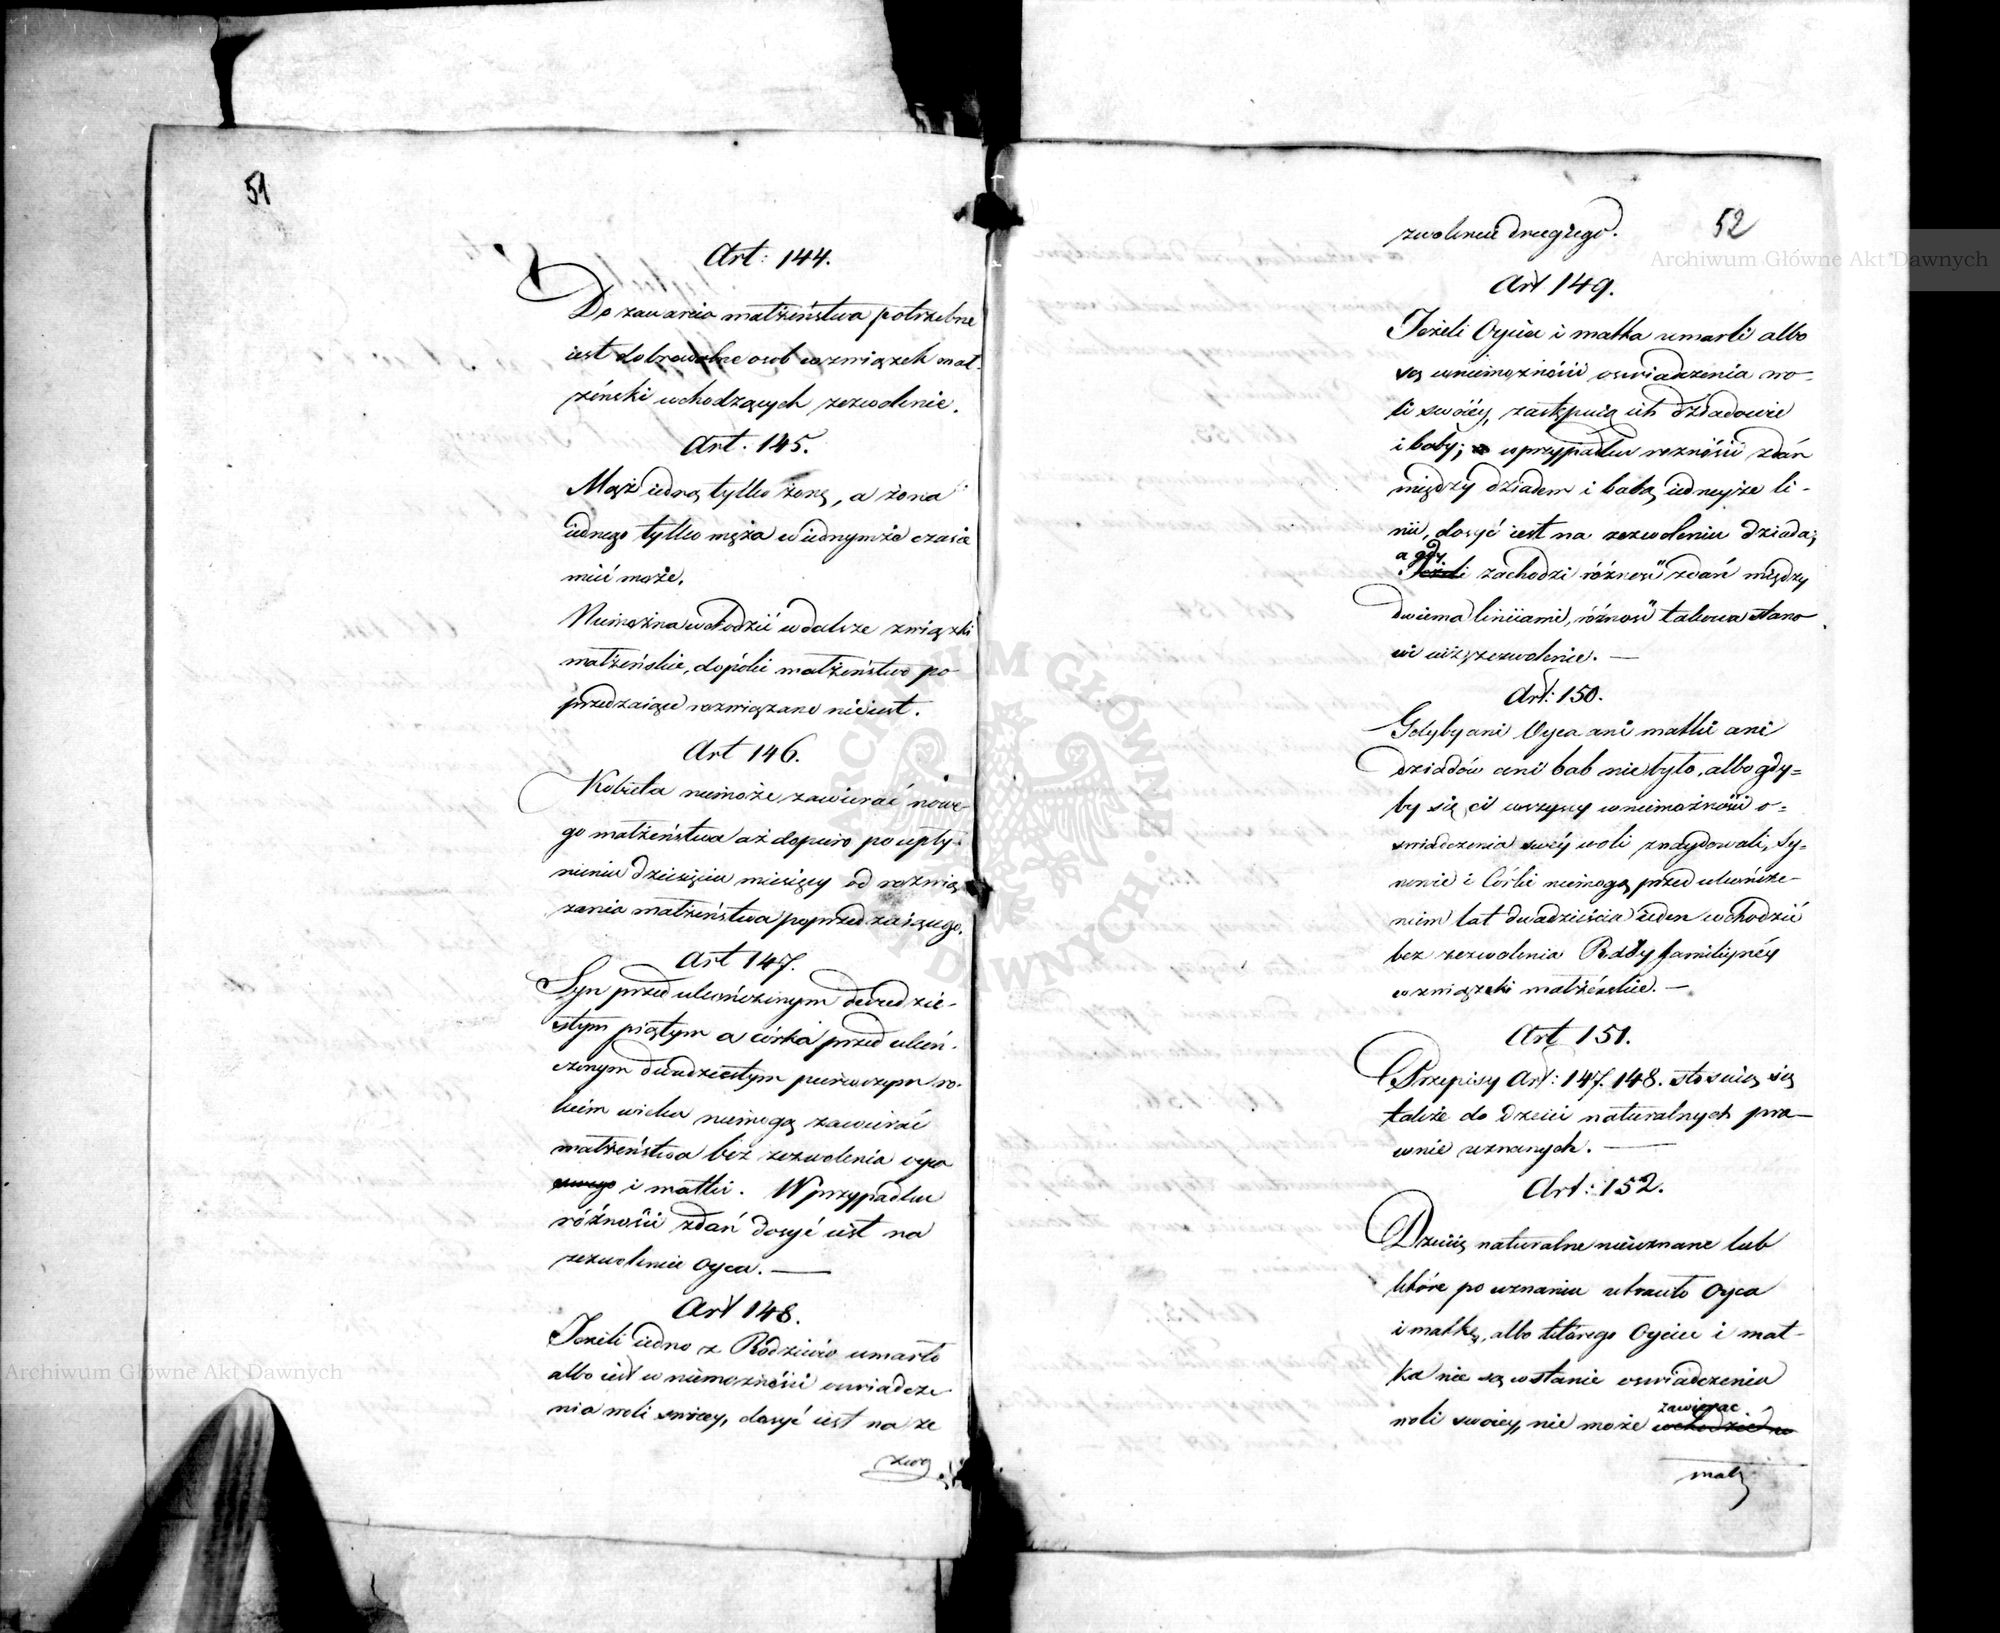 51
Art: 144.
Do zawarcia małżeństwa potrzebne
iest dobrowolne osob w związek mał-
żeński wchodzących zezwolenie.
Art. 145.
Mąż iedną tylko żonę, a żona
iednego tylko męża w iednymże czasie
mieć może.
Niemożna wchodzić w dalsze związki
małżeńskie, dopóki małżeństwo po-
przedzaiące rozwiązane nie iest.
Art 146.
Kobieta niemoże zawierać nowe-
go małżeństwa aż dopiero po upły-
nieniu dziesięciu miesięcy od rozwią
zania małżeństwa poprzedzaiącego.
Art 147.
Syn przed ukończonym dwudzie-
stym piątym a córka przed ukoń-
czonym dwudziestym pierwszym ro-
kiem wieku niemogą zawierać
małżeństwa bez zezwolenia oyca
swego i matki. W przypadku
różności zdań dosyć iest na
zezwolenie Oyca. —
Art 148.
Jeżeli iedno z Rodziców umarło
albo iest w niemożności oswiadcze
nia woli swoiey, dosyć iest na ze
zwo
52
zwoleniu drugiego.
Art 149.
Jeżeli Oyciec i matka umarli albo
są w niemożności oswiadczenia wo-
li swoiéy, zastępuią ich dziadowie
i baby; w przypadku rozności zdań
między dziadem i babą iedneyże li-
nii, dosyć iest na zezwoleniu dziada;
a gdy
Jeżeli zachodzi różność zdań między
dwiema liniiami, różność takowa stano
wi iuż zezwolenie. —
Art: 150.
Gdyby ani Oyca ani matki ani
dziadów ani bab nie było, albo gdy=
by się ci wszyscy w niemożności o=
swiadczenia swéy woli znaydowali, Sy=
nowie i Córki niemogą przed ukończe-
niem lat dwadzieścia ieden wchodzić
bez zezwolenia Rady familiynéy
w związki małżeńskie. —
Art 151.
Przepisy Art: 147. 148. stosuią się
także do dzieci naturalnych pra—
wnie uznanych. —
Art: 152.
Dziecię naturalne nieuznane lub
które po uznaniu utraciło Oyca
i matkę, albo którego Oyciec i mat-
ka nie są w stanie oswiadczenia
zawierac
woli swoiey, nie może wchodzić w
mał
Archiwum Główne Akt Dawnych
Archiwum Główne Akt Dawnych
ARCHIWUM GŁÓWNE AKT DAWNYCH